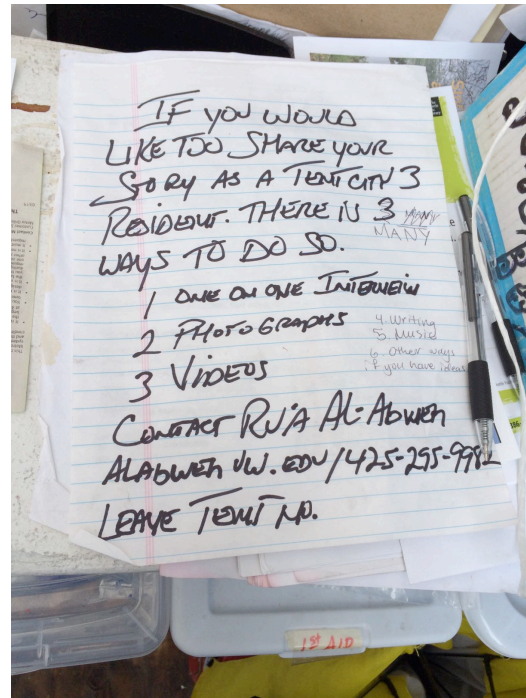 IF YOU WOULD
LIKE TOO SHARE YOUR
STORY AS A TENT CITY 3
RESIDENT. THERE IS 3 MANY
MANY
WAYS TO DO SO.
1 ONE ON ONE INTERVEIW
2 PHOTOGRAPHS
3 VIDEOS
4. Writing
5. Music
6. other ways
if you have ideas
CONTACT RU'A AL-ABWEH
ALABWEH UW.EDU/425-295-9982
LEAVE TENT NO.
1st AID